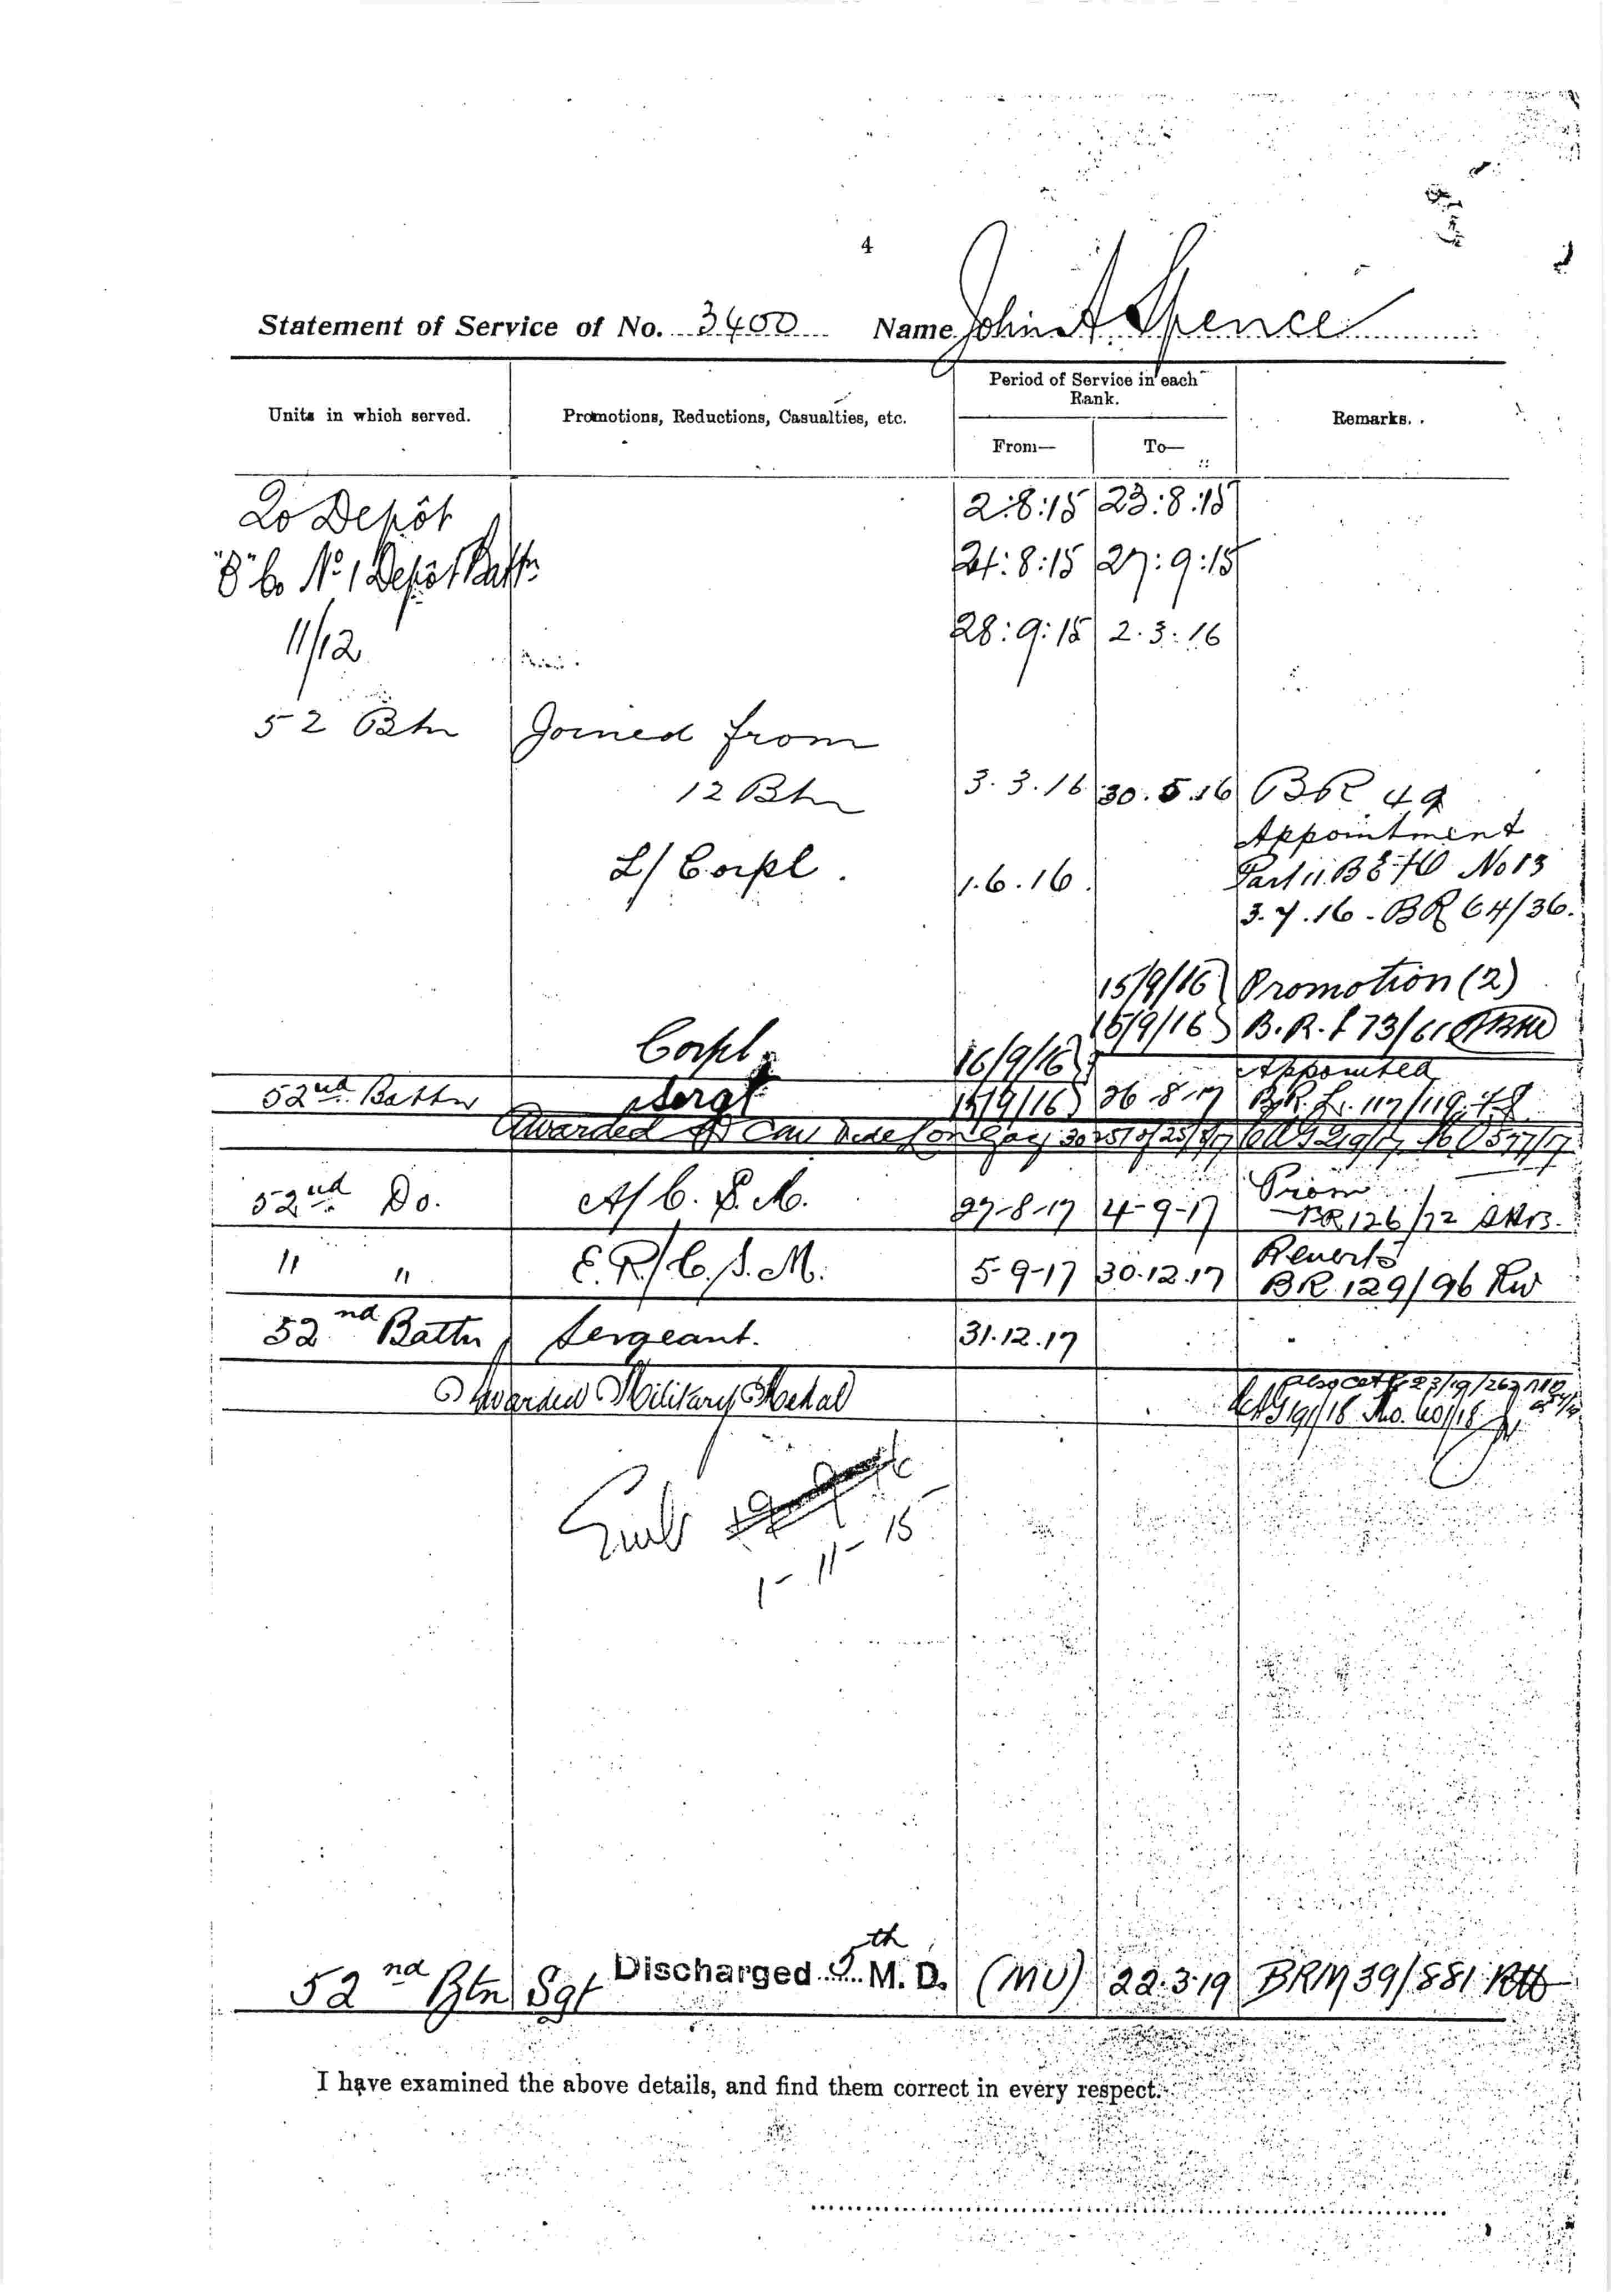 4
Statement of Service of No. 3400 Name John A Spence
Units in which served. Promotions, Reductions, Casualties, etc. Period of Service in each Rank. Remarks.
From— To—
20 Depôt 2:8:15 23:8:15
"B" Co No 1 Depôt Battn 24:8:15 27:9:15
11/12 28:9:15 2.3.16
52 Btn Joined from
12 Btn 3.3.16 30.5.16 BR 49
Appointment
L/Corpl. 1.6.16. Part 11. No 13
3.7.16 - BR 64/36.
15/9/16 Promotion (2)
15/9/16 B.R. 73/61
Corpl. 16/9/16
Appointed
52nd Battn Sergt 26-8-17 117/119
Awarded
52nd Do. A/C.S.M. 27-8-17 4-9-17 Prom
BR 126/72
" " E.R/C.S.M. 5-9-17 30.12.17 Reverts
BR 129/96
52nd Battn Sergeant. 31.12.17
Awarded Military Medal
Emb
1-11-15
52nd Btn Sgt Discharged 5th M.D. (MU) 22.3.19 BRM 39/881
I have examined the above details, and find them correct in every respect.